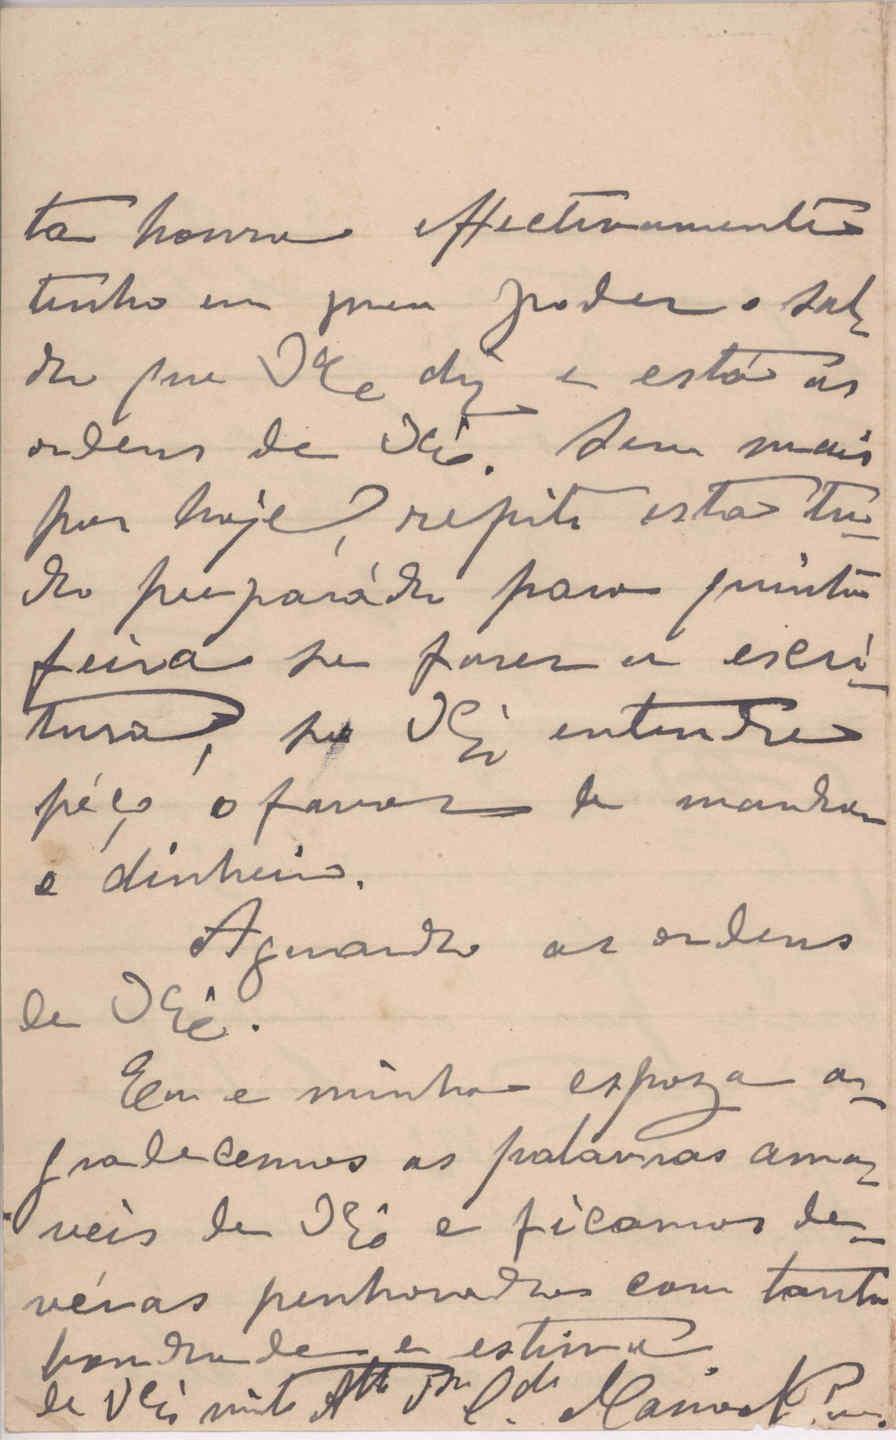 ta honra effectivamente
tinho em meu poder o sal-
do que VEx.ce diz e está ás
ordens de VExª. Sem mais
por hoje, repito esta tu-
do preparádo para quinta
feira se fazer a escri-
tura, se VExª entender
péço o favor de mandar
o dinheiro.
Aguardo as ordens
de VExª.
Eu e minha espoza a-
gradecemos as palavras ama-
veis de VExª e ficamos de-
véras penhorados com tanta
bondade e estima
de VExª mto Attº Vor C.do